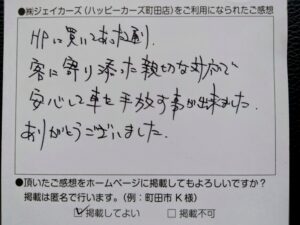 ●㈱ジェイカーズ（ハッピーカーズ町田店）をご利用になられたご感想
HPに書いてあった通り、
客に寄り添った親切な対応で
安心して車を手放す事が出来ました。
ありがとうございました。
●頂いたご感想をホームページに掲載してもよろしいですか？
掲載は匿名で行います。（例：町田市 K 様）
☑掲載してよい　□掲載不可